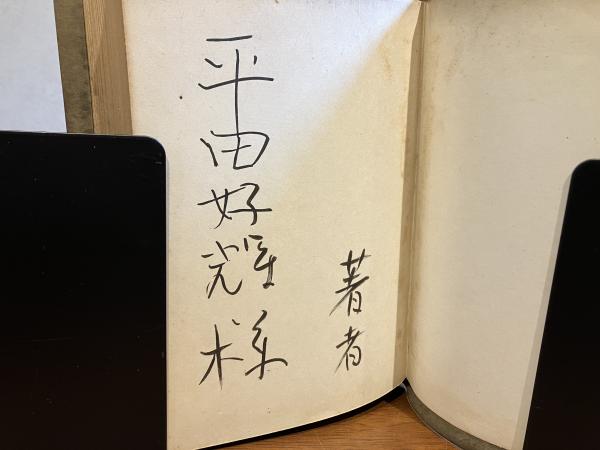 平田好輝様
著者